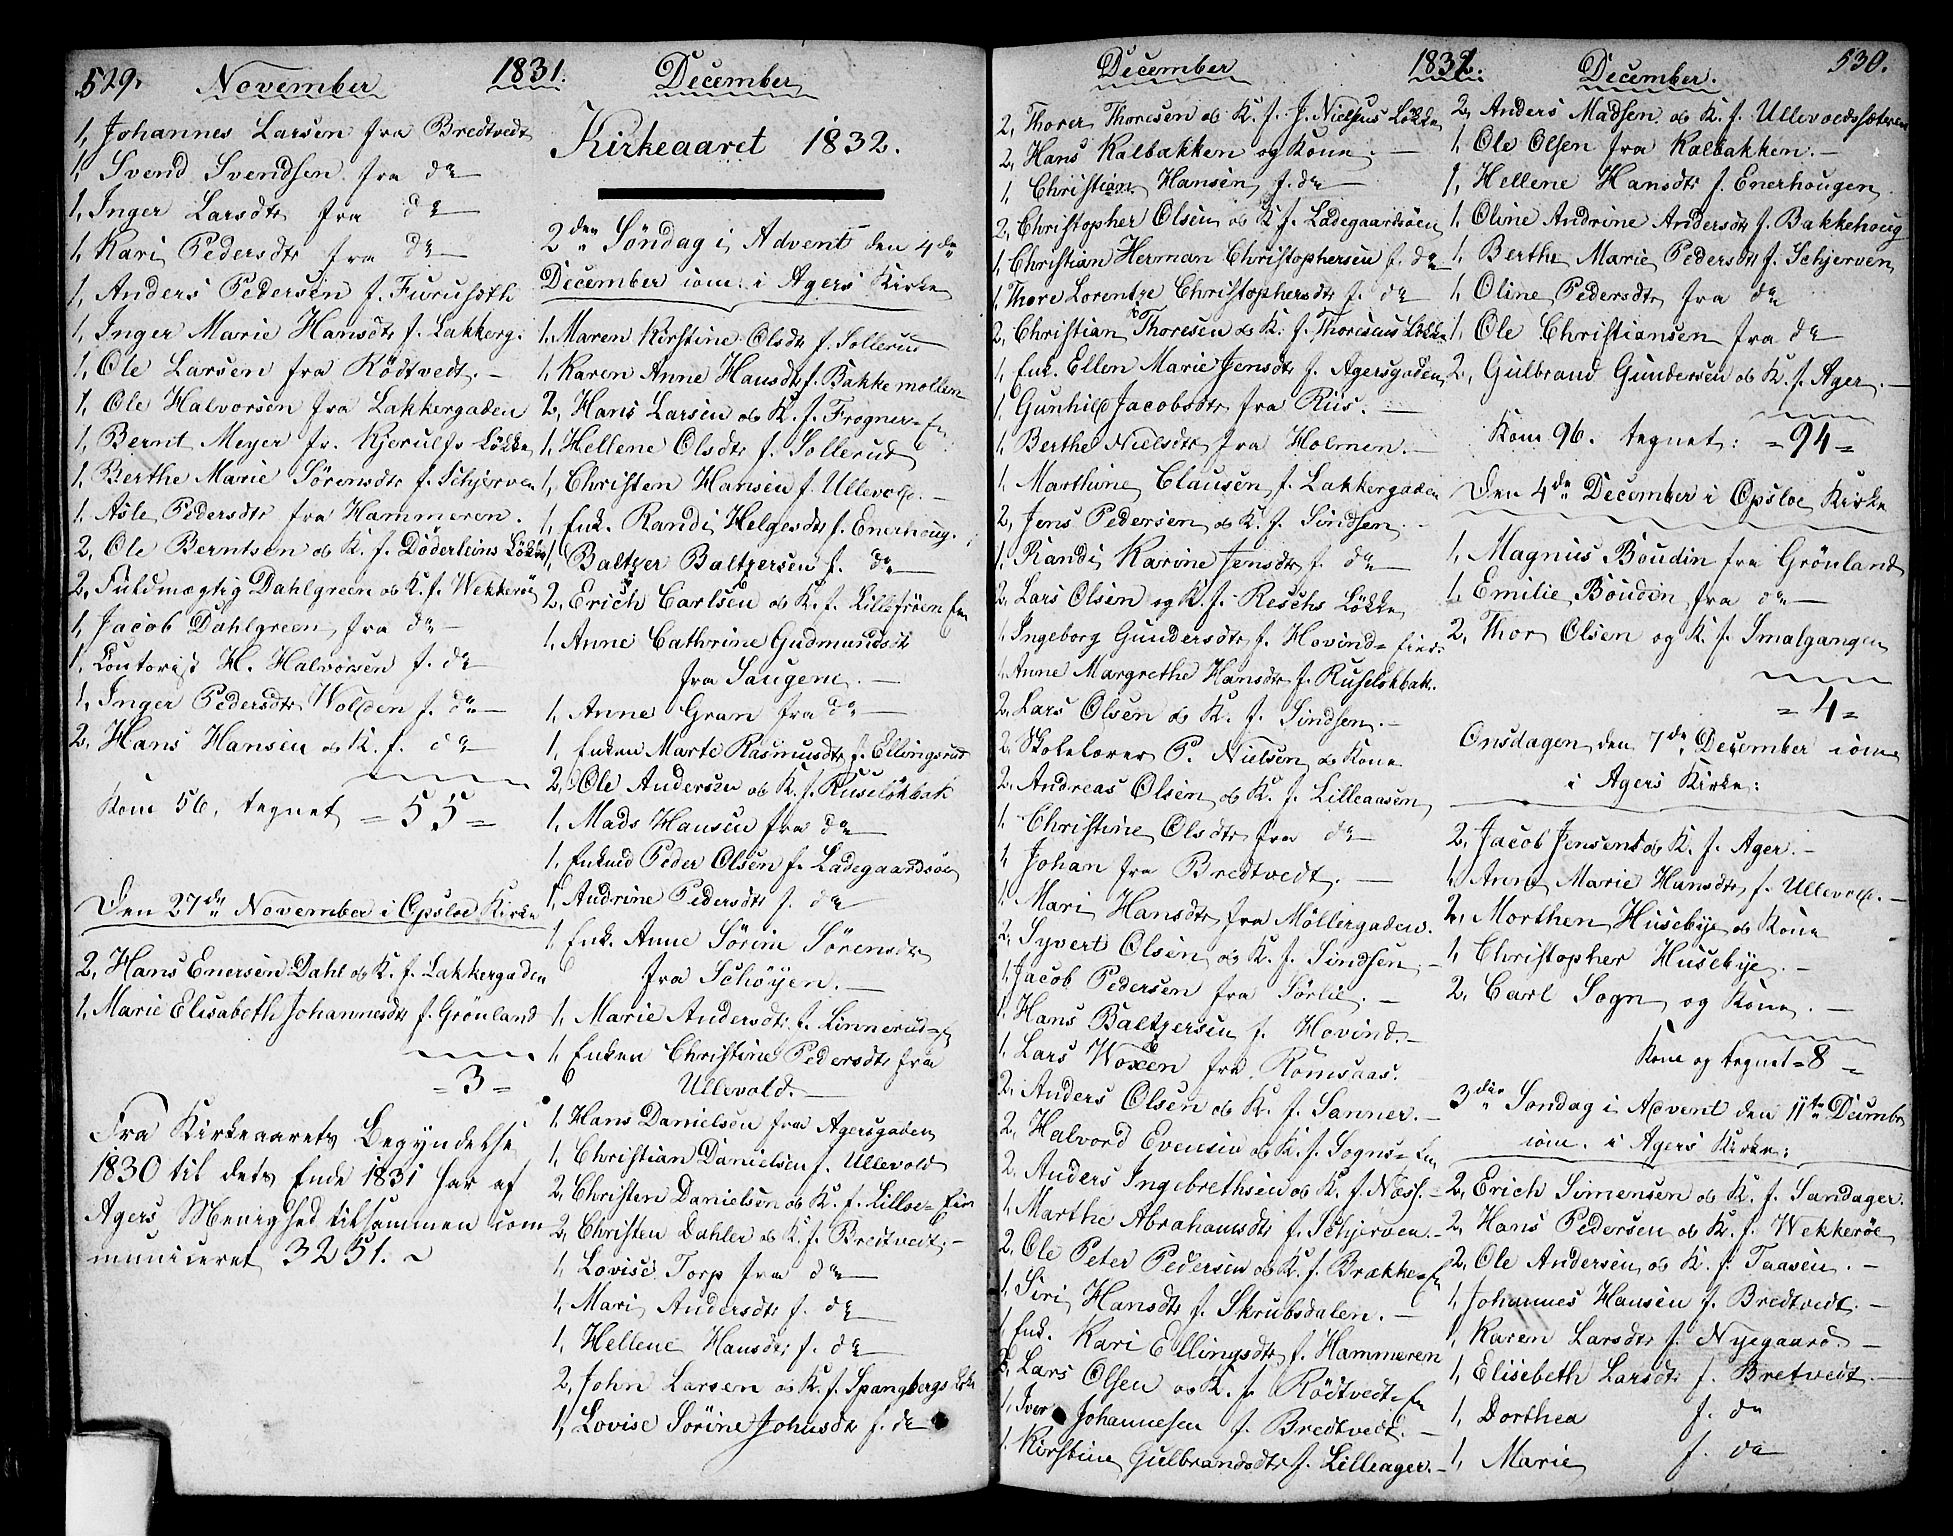 529.
November
1831.
1, Johannes Larsen fra Bredtvedt
1, Svend Svendsen fra do
1, Inger Larsdtr fra do
1, Kari Pedersdtr fra do
1, Anders Pedersen f. Furuseth
1, Inger Marie Hansdtr f. Lakkerg.
1, Ole Larsen fra Rödtvedt.
1, Ole Halvorsen fra Lakkergaden
1, Bernt Meyer fr. Kjerulfs Lökke
1, Berthe Marie Sörensdtr f. Schjerven
1, Asle Pedersdtr fra Hammeren.
2, Ole Berntsen og K. f. Döderleins Lökke
2, Fuldmægtig Dahlgreen og K. f. Wekkerö
1, Jacob Dahlgreen fra do
1, Contorist H. Halvorsen f. do
1, Inger Pedersdtr Wolden f. do
2, Hans Hansen og K. f. do
Kom 56, tegnet = 55 =
Den 27de November i Opsloe Kirke
2, Hans Enersen Dahl og K. f. Lakkergaden
1, Marie Elisabeth Johannesdtr f. Grönland
= 3 =
Fra Kirkeaarets Begyndelse
1830 til dets Ende 1831 har af
Agers Menighed tilsammen com
municeret 3251.
December
Kirkeaaret 1832.
2den Söndag i Advent den 4de
December com: i Agers Kirke
1, Maren Kirstine Olsdtr f. Sollerud
1, Karen Anne Hansdtr f. Bakkemollen
2, Hans Larsen og K. f. Frogner=En
1, Hellene Olsdtr f. Sollerud
1, Christen Hansen f. Ullevold.
1, Enk. Randi Helgesdtr f. Enerhoug.
1, Baltzer Baltzersen f. do
2, Erich Carlsen og K. f. Lillefröen En
1, Anne Cathrine Gudmundsdtr
fra Saugene.
1, Anne Gran fra do
1, Enken Marte Rasmusdtr f. Ellingsrud
2, Ole Andersen og K. f. Ruselökbak
1, Mads Hansen fra do
1, Enkmd Peder Olsen f. Ladegaardsöen
1, Andrine Pedersdtr f. do
1, Enk. Anne Sörine Sörensdtr
fra Schöyen.
1, Marie Andersdtr f. Linnerud=E
1, Enken Christine Pedersdtr fra
Ullevold.
1, Hans Danielsen fra Agersgaden
1, Christian Danielsen f. Ullevold
2, Christen Danielsen og K. f. Lilloe=Eie
2, Christen Dahler og K. f. Bredtvedt.
1, Lovise Torp fra do
1, Mari Andersdtr f. do
1, Hellene Hansdtr f. do
2, John Larsen og K. f. Spangbergs Lökke
1, Lovise Sörine Johnsdtr f. do
December
1832.
2, Thorer Thoresen og K. f. J. Nielsens Lökke
2, Hans Kalbakken og Kone.
1, Christian Hansen f. do
2, Christopher Olsen og K. f. Ladegaardsöen
1, Christian Herman Christophersen f. do
1, Thore Lorentze Christophersdtr f. do
2, Christian Thoresen og K. f. Thoresens Lökke
1, Enk. Ellen Marie Jensdtr f. Agersgaden
1, Gunhild Jacobsdtr fra Riis.
1, Berthe Nielsdtr fra Holmen.
1, Marthine Clausen f. Lakkergaden
2, Jens Pedersen og K. f. Sindsen.
1, Randi Karine Jensdtr f. do
2, Lars Olsen og K. f. Reschs Lökke
1, Ingeborg Gundersdtr f. Hovind=Eier
1, Anne Margrethe Hansdtr f. Ruselökbak.
2, Lars Olsen og K. f. Sindsen.
2, Skolelærer P. Nielsen og Kone
2, Andreas Olsen og K. f. Lilleaasen
1, Christine Olsdtr fra do
1, Johan fra Bredtvedt.
1, Mari Hansdtr fra Möllergaden.
2, Syvert Olsen og K. f. Sindsen.
1, Jacob Pedersen fra Sörlie.
1, Hans Baltzersen f. Hovind.
1, Lars Woxen fra Romsaas.
2, Anders Olsen og K. f. Sanner.
2, Halvord Evensen og K. f. Sogns=En
2, Anders Ingebrethsen og K. f. Næss.
1, Marthe Abrahamsdtr f. Schjerven.
2, Ole Peter Pedersen og K. f. Brække=En
1, Siri Hansdtr f. Skrubsdalen.
1, Enk. Kari Ellingsdtr f. Hammeren
2, Lars Olsen og K. f. Rödtvedt=En
1, Iver Johannesen f. Bredtvedt.
1, Kirstine Gulbrandsdtr f. Lilleager.
December.
530.
2, Anders Madsen og K. f. Ullevoldssæteren
1, Ole Olsen fra Kalbakken.
1, Hellene Hansdtr f. Enerhougen
1, Oline Andrine Andersdtr f. Bakkehoug
1, Berthe Marie Pedersdtr f. Schjerven
1, Oline Pedersdtr fra do
1, Ole Christiansen fra do
2, Gulbrand Gundersen og K. f. Ager.
Kom 96. tegnet: = 94 =
Den 4de December i Opsloe Kirke
1, Magnus Boudin fra Grönland
1, Emilie Boudin fra do
2, Thor Olsen og K. f. Smalgangen
= 4 =
Onsdagen den 7de December com
i Agers Kirke:
2, Jacob Jensen og K. f. Ager.
1, Anne Marie Hansdtr f. Ullevold.
2, Morthen Husebye og Kone
1, Christopher Husebye.
2, Carl Sogn og Kone.
Kom og tegnet = 8 =
3die Söndag i Advent den 11te Decembr
com. i Agers Kirke:
2, Erich Simensen og K. f. Sandager.
2, Hans Pedersen og K. f. Wekkeröe
2, Ole Andersen og K. f. Taasen.
1, Johannes Hansen f. Bredtvedt.
1, Karen Larsdtr f. Nyegaard
1, Elisebeth Larsdtr f. Bretvedt.
1, Dorthea f. do
1, Marie f. do